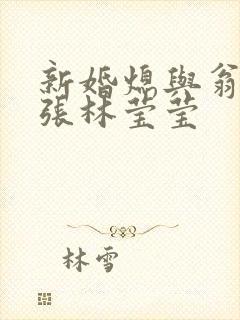 新婚熄與翁
張林莹莹
林雪